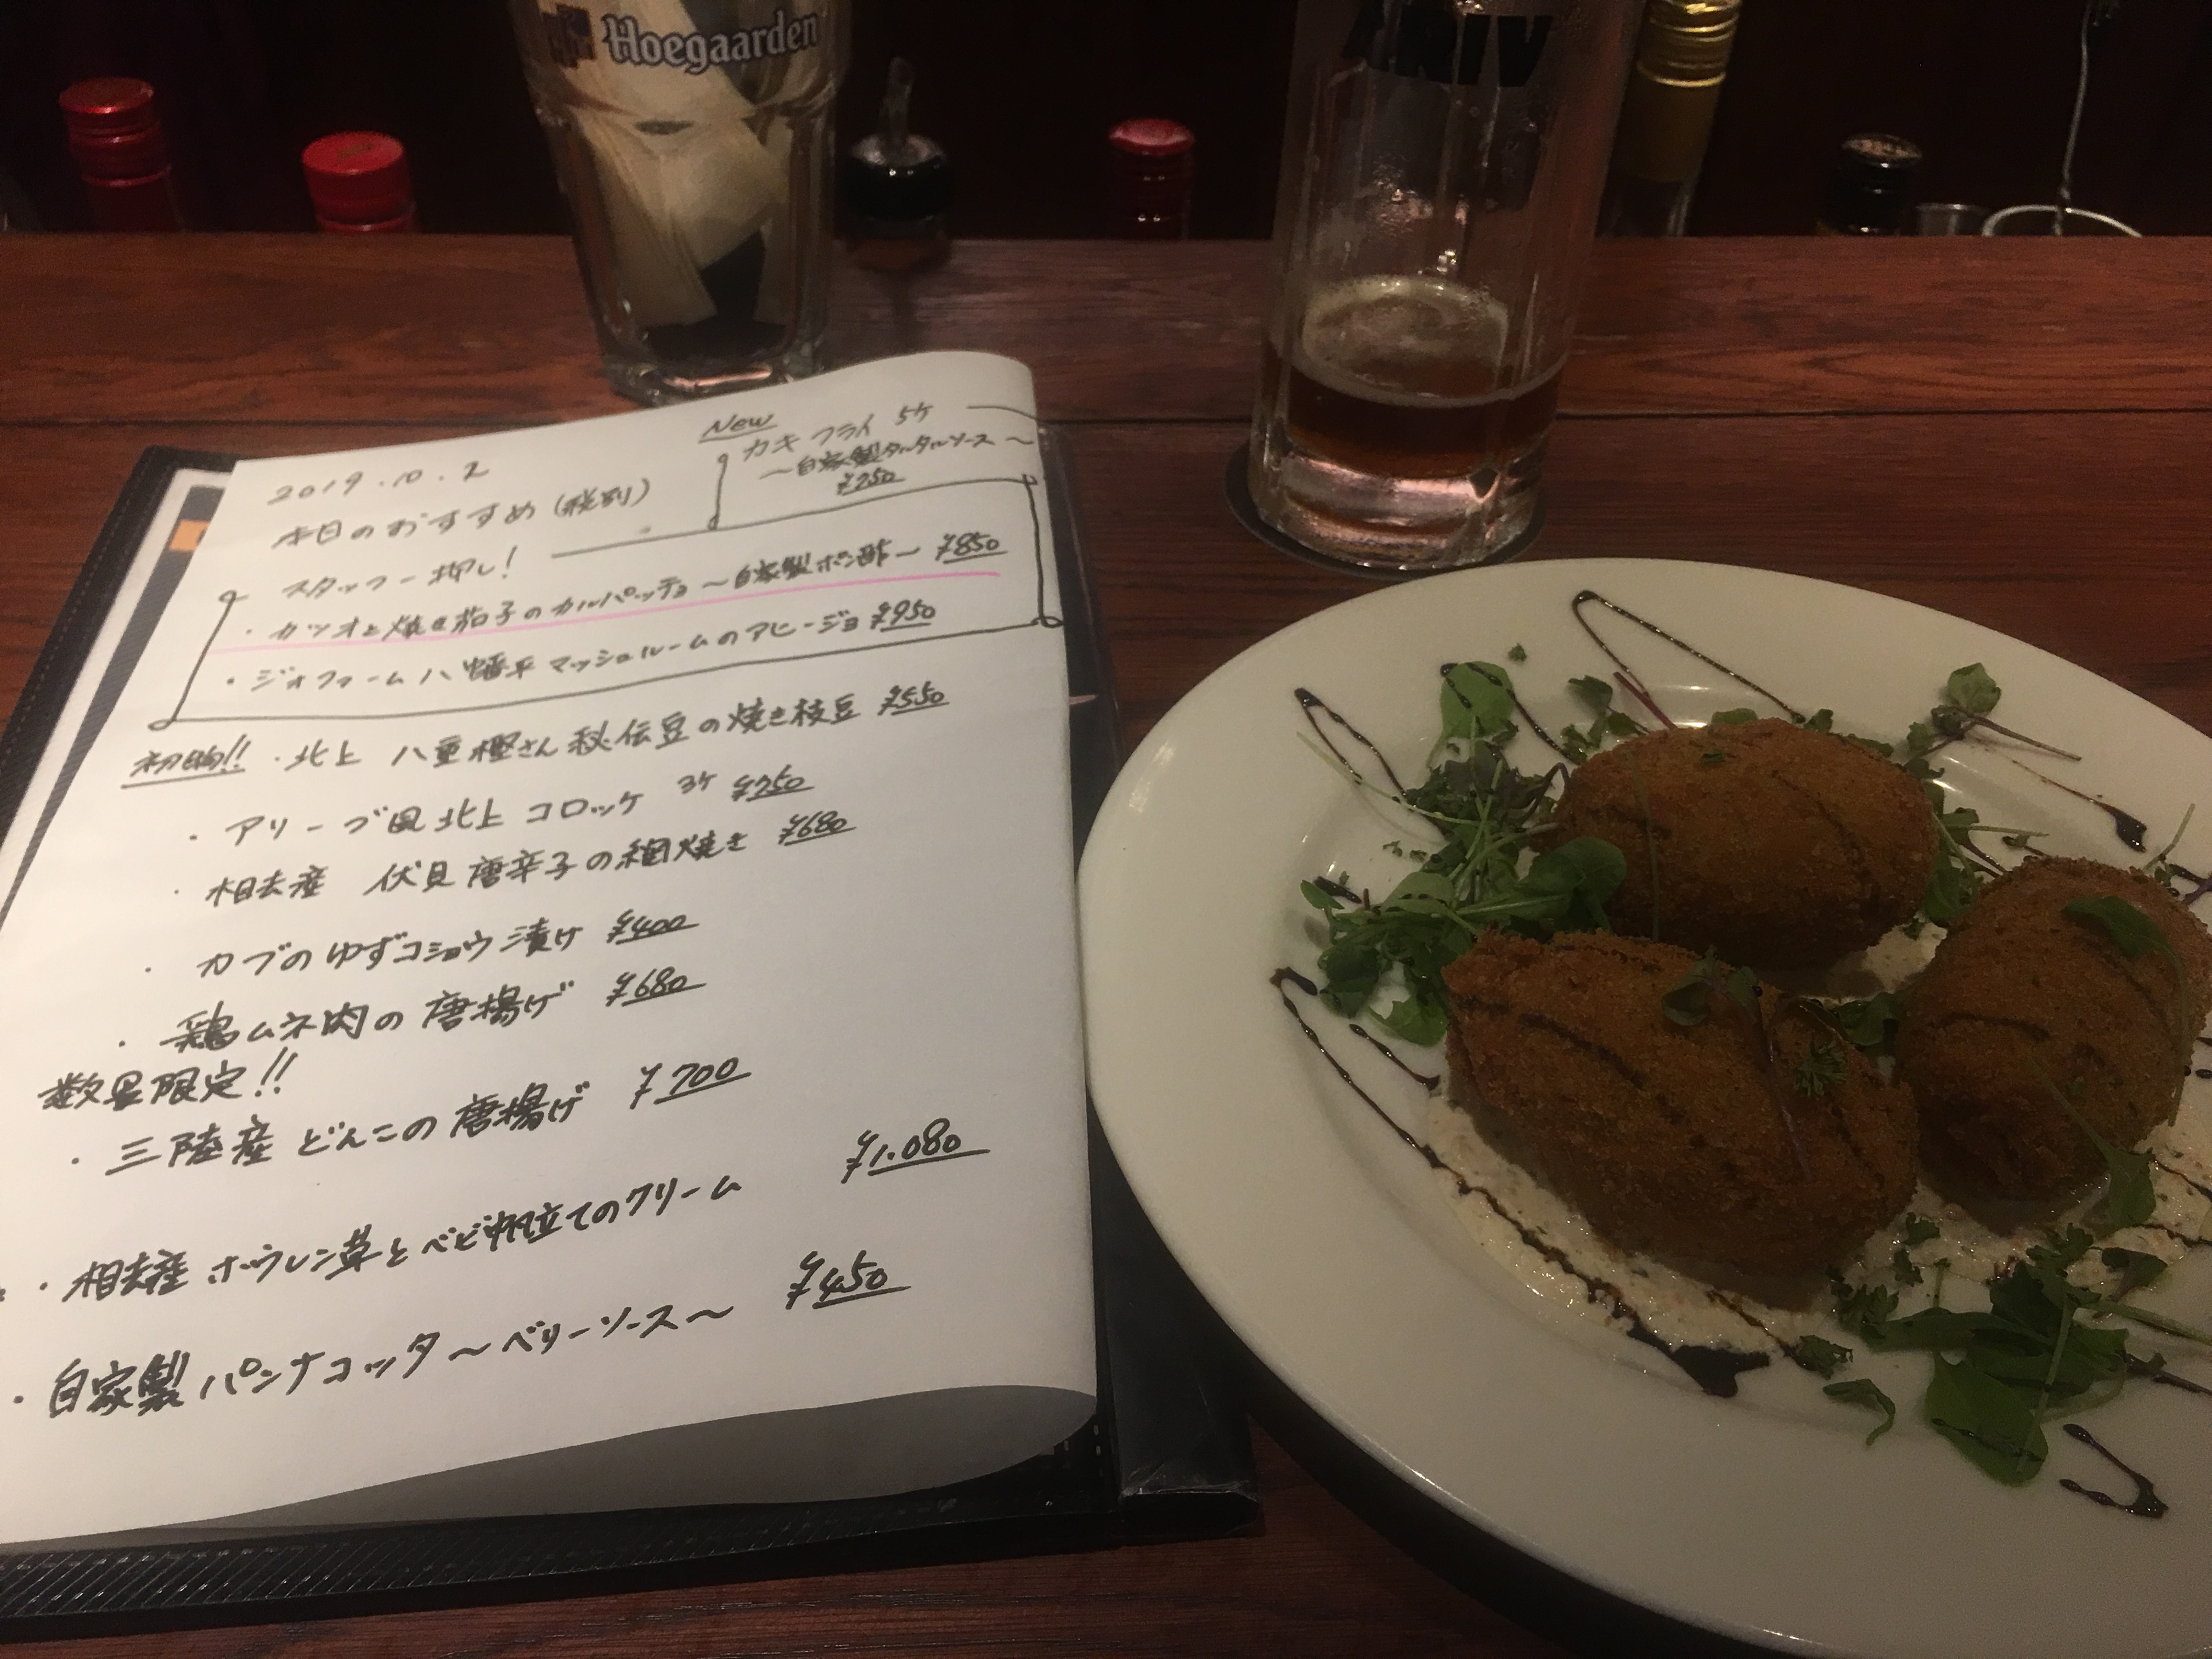 Hoegaarden
2019.10.2
本日のおすすめ(税別)
New
カキフライ 5ケ
〜自家製タルタルソース〜
¥750
スタッフ一押し!
・カツオと焼き茄子のカルパッチョ〜自家製ポン酢〜 ¥850
・ジオファーム八幡平マッシュルームのアヒージョ ¥950
初物!! ・北上 八重樫さん秘伝豆の焼き枝豆 ¥550
・アリーブ風北上コロッケ 3ケ ¥750
・相去産 伏見唐辛子の網焼き ¥680
・カブのゆずコショウ漬け ¥400
・鶏ムネ肉の唐揚げ ¥680
数量限定!!
・三陸産どんこの唐揚げ ¥700
・相去産ホウレン草とベビ帆立てのクリーム ¥1.080
・自家製パンナコッタ〜ベリーソース〜 ¥450